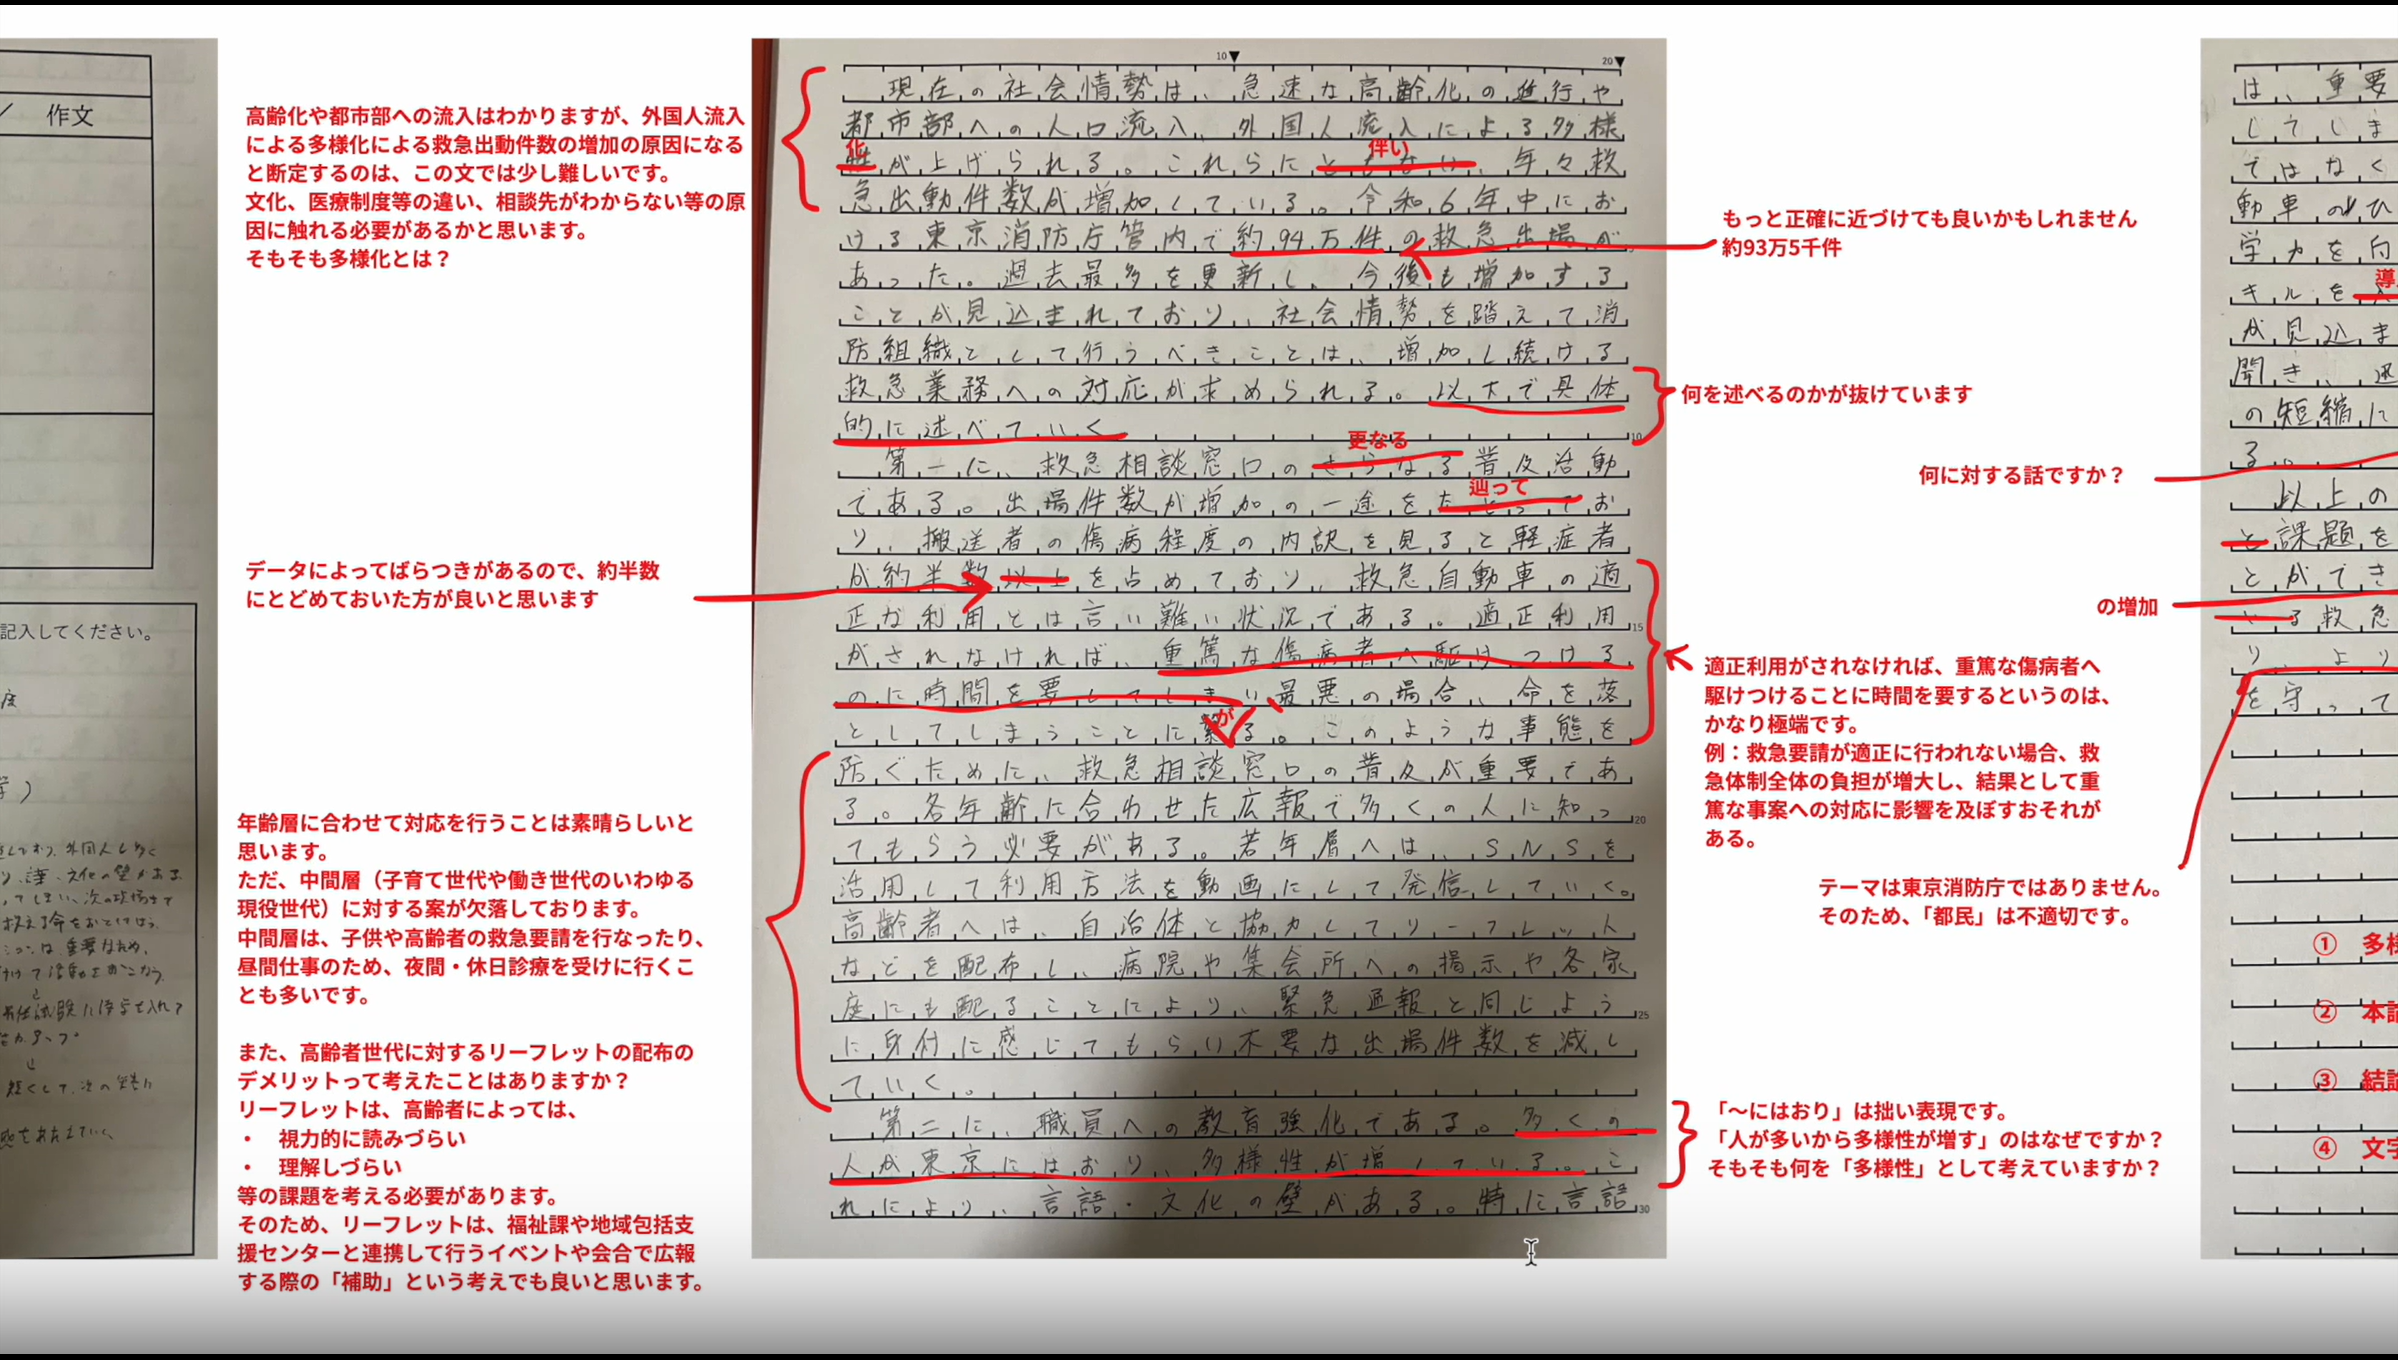 ／　作文
記入してください。
高齢化や都市部への流入はわかりますが、外国人流入
による多様化による救急出動件数の増加の原因になる
と断定するのは、この文では少し難しいです。
文化、医療制度等の違い、相談先がわからない等の原
因に触れる必要があるかと思います。
そもそも多様化とは？
データによってばらつきがあるので、約半数
にとどめておいた方が良いと思います
年齢層に合わせて対応を行うことは素晴らしいと
思います。
ただ、中間層（子育て世代や働き世代のいわゆる
現役世代）に対する案が欠落しております。
中間層は、子供や高齢者の救急要請を行なったり、
昼間仕事のため、夜間・休日診療を受けに行くこ
とも多いです。
また、高齢者世代に対するリーフレットの配布の
デメリットって考えたことはありますか？
リーフレットは、高齢者によっては、
・　視力的に読みづらい
・　理解しづらい
等の課題を考える必要があります。
そのため、リーフレットは、福祉課や地域包括支
援センターと連携して行うイベントや会合で広報
する際の「補助」という考えでも良いと思います。
10 20
現在の社会情勢は、急速な高齢化の進行や
都市部への人口流入、外国人流入による多様
化
性が上げられる。これらにともない、年々救
伴い
急出動件数が増加している。令和6年中にお
ける東京消防庁管内で約94万件の救急出場が
あった。過去最多を更新し、今後も増加する
ことが見込まれており、社会情勢を踏えて消
防組織として行うべきことは、増加し続ける
救急業務への対応が求められる。以下で具体
的に述べていく
10
更なる
第一に、救急相談窓口のさらなる普及活動
辿って
である。出場件数が増加の一途をたどってお
り、搬送者の傷病程度の内訳を見ると軽症者
が約半数以上を占めており、救急自動車の適
正な利用とは言い難い状況である。適正利用
15
がされなければ、重篤な傷病者へ駆けつける
のに時間を要してしまい最悪の場合、命を落
が
としてしまうことに繋る。このような事態を
防ぐために、救急相談窓口の普及が重要であ
る。各年齢に合わせた広報で多くの人に知っ
20
てもらう必要がある。若年層へは、SNSを
活用して利用方法を動画にして発信していく。
高齢者へは、自治体と協力してリーフレット
などを配布し、病院や集会所への掲示や各家
庭にも配ることにより、緊急通報と同じよう
25
に身付に感じてもらい不要な出場件数を減し
ていく。
第二に、職員への教育強化である。多くの
人が東京にはおり、多様性が増している。こ
れにより、言語・文化の壁がある。特に言語
30
もっと正確に近づけても良いかもしれません
約93万5千件
何を述べるのかが抜けています
何に対する話ですか？
の増加
適正利用がされなければ、重篤な傷病者へ
駆けつけることに時間を要するというのは、
かなり極端です。
例：救急要請が適正に行われない場合、救
急体制全体の負担が増大し、結果として重
篤な事案への対応に影響を及ぼすおそれが
ある。
テーマは東京消防庁ではありません。
そのため、「都民」は不適切です。
「〜にはおり」は拙い表現です。
「人が多いから多様性が増す」のはなぜですか？
そもそも何を「多様性」として考えていますか？
は、重要
してしま
ではなく
動車のひ
学力を向
導
キルを
が見込ま
聞き、迅
の短縮に
る。
以上の
と課題を
とができ
いる救急
り、より
を守って
①　多様
②　本論
③　結論
④　文字